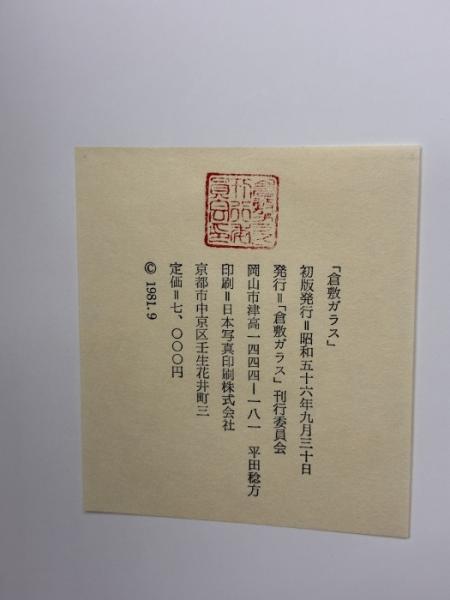 「倉敷ガラス」
初版発行＝昭和五十六年九月三十日
発行＝「倉敷ガラス」刊行委員会
岡山市津高一四四四ー一八一　平田稔方
印刷＝日本写真印刷株式会社
京都市中京区壬生花井町三
定価＝七、〇〇〇円
© 1981. 9